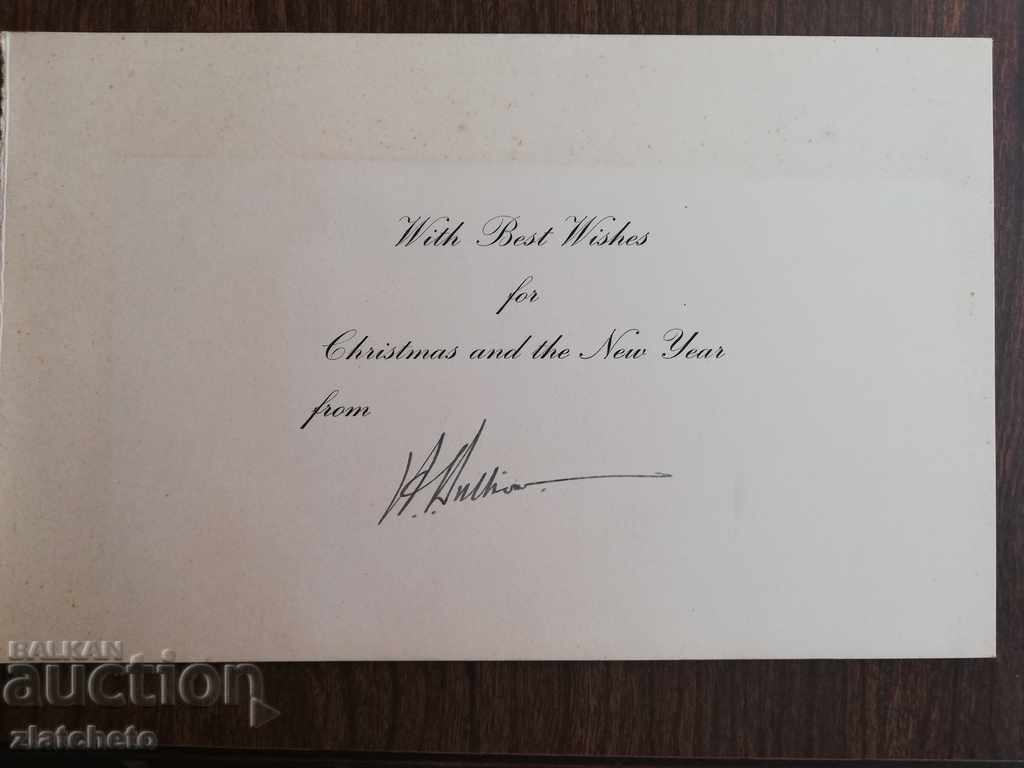 With Best Wishes
for
Christmas and the New Year
from
BALKAN
auction
zlatcheto